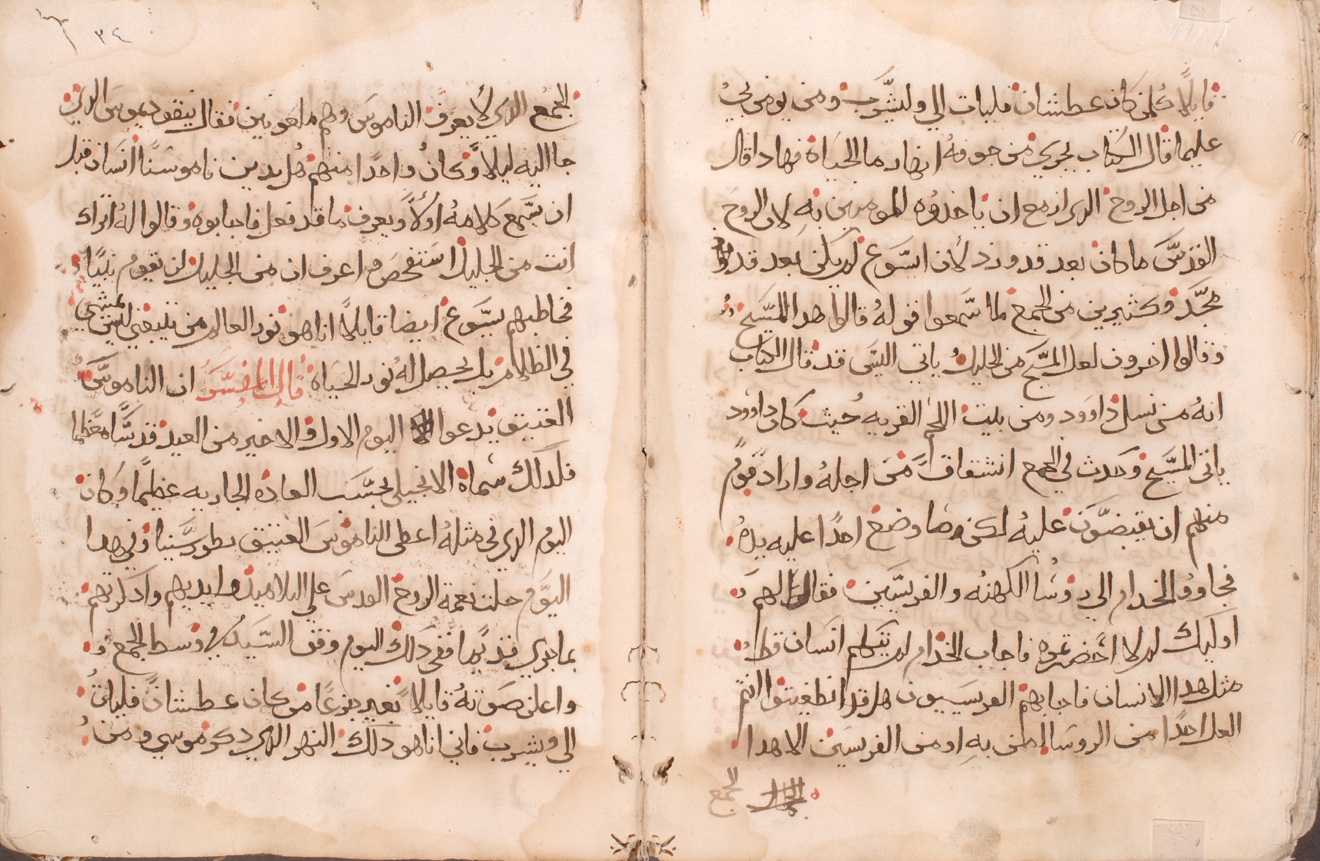 قايلاً كلمن كان عطشان فليات الي وليشرب ومن يومن بي
علي ما قال الكتاب يجري من جوفه انهار ما الحياة فهادا قال
من اجل الروح الدي ازمع ان ياخدوه المومنين به لان الروح
القدس ما كان بعد قد ورد لان اسوع لم يكن بعد قد
مجد وكثيرين من الجمع لما سمعوا قوله قالوا هدا المسيح
وقالوا اخرون لعل المسيح من الجليل ياتي اليس قد قال الكتاب
انه من نسل داوود ومن بيت اللحم القريه حيث كان داوود
ياتي المسيح وحدث في الجمع انشقاقاً من اجله واراد قوم
منهم ان يقبضون عليه لكن ما وضع احدًا عليه يده
فجاووا الخدام الي روسا الكهنه والفريسين فقال لهم
اوليك لم لا احضرتموه فاجاب الخدام لم يتكلم انسان قط
مثل هدا الانسان فاجابهم الفريسيون هل قد انطغيتوا انتم
العل احدًا من الروسا امن به او من الفريسين الا هدا
الجمع
٣٤
الجمع الدي لا يعرف الناموس وهم ملعونين فقال نيقوديموس الدي
جا اليه ليلاً وكان واحدًا منهم هل يدين ناموسنا انسان قبل
ان يسمع كلامه اولاً ويعرف ما قد فعل فاجابوه وقالوا له اتراك
انت من الجليل استفحص واعرف ان من الجليل لن يقوم نبيًا
فخاطبهم يسوع ايضا قايلاً انا هو نور العالم من تبيعني ليس يمشي
في الظلام بل يحصل له نور الحياة قال المفسر ان الناموس
العتيق يدعوا اليوم الاول والاخير من العيد قدسًا معظما
فلدلك سماه الانجيلي بحسب العاده الجاريه عظيمًا وكان
اليوم الدي في مثله اعطي الناموس العتيق بطور سينا وفي هدا
اليوم حلت نعمة الروح القدس علي التلاميد وايديهم وادكرهم
بما جري قديمًا ففي دلك اليوم وقف السيد في وسط الجمع
واعلن صوته قايلاً بغير جزعًا من كان عطشانً فليات
الي ويشرب فاني انا هو دلك النهر الدي دكر موسي ومن